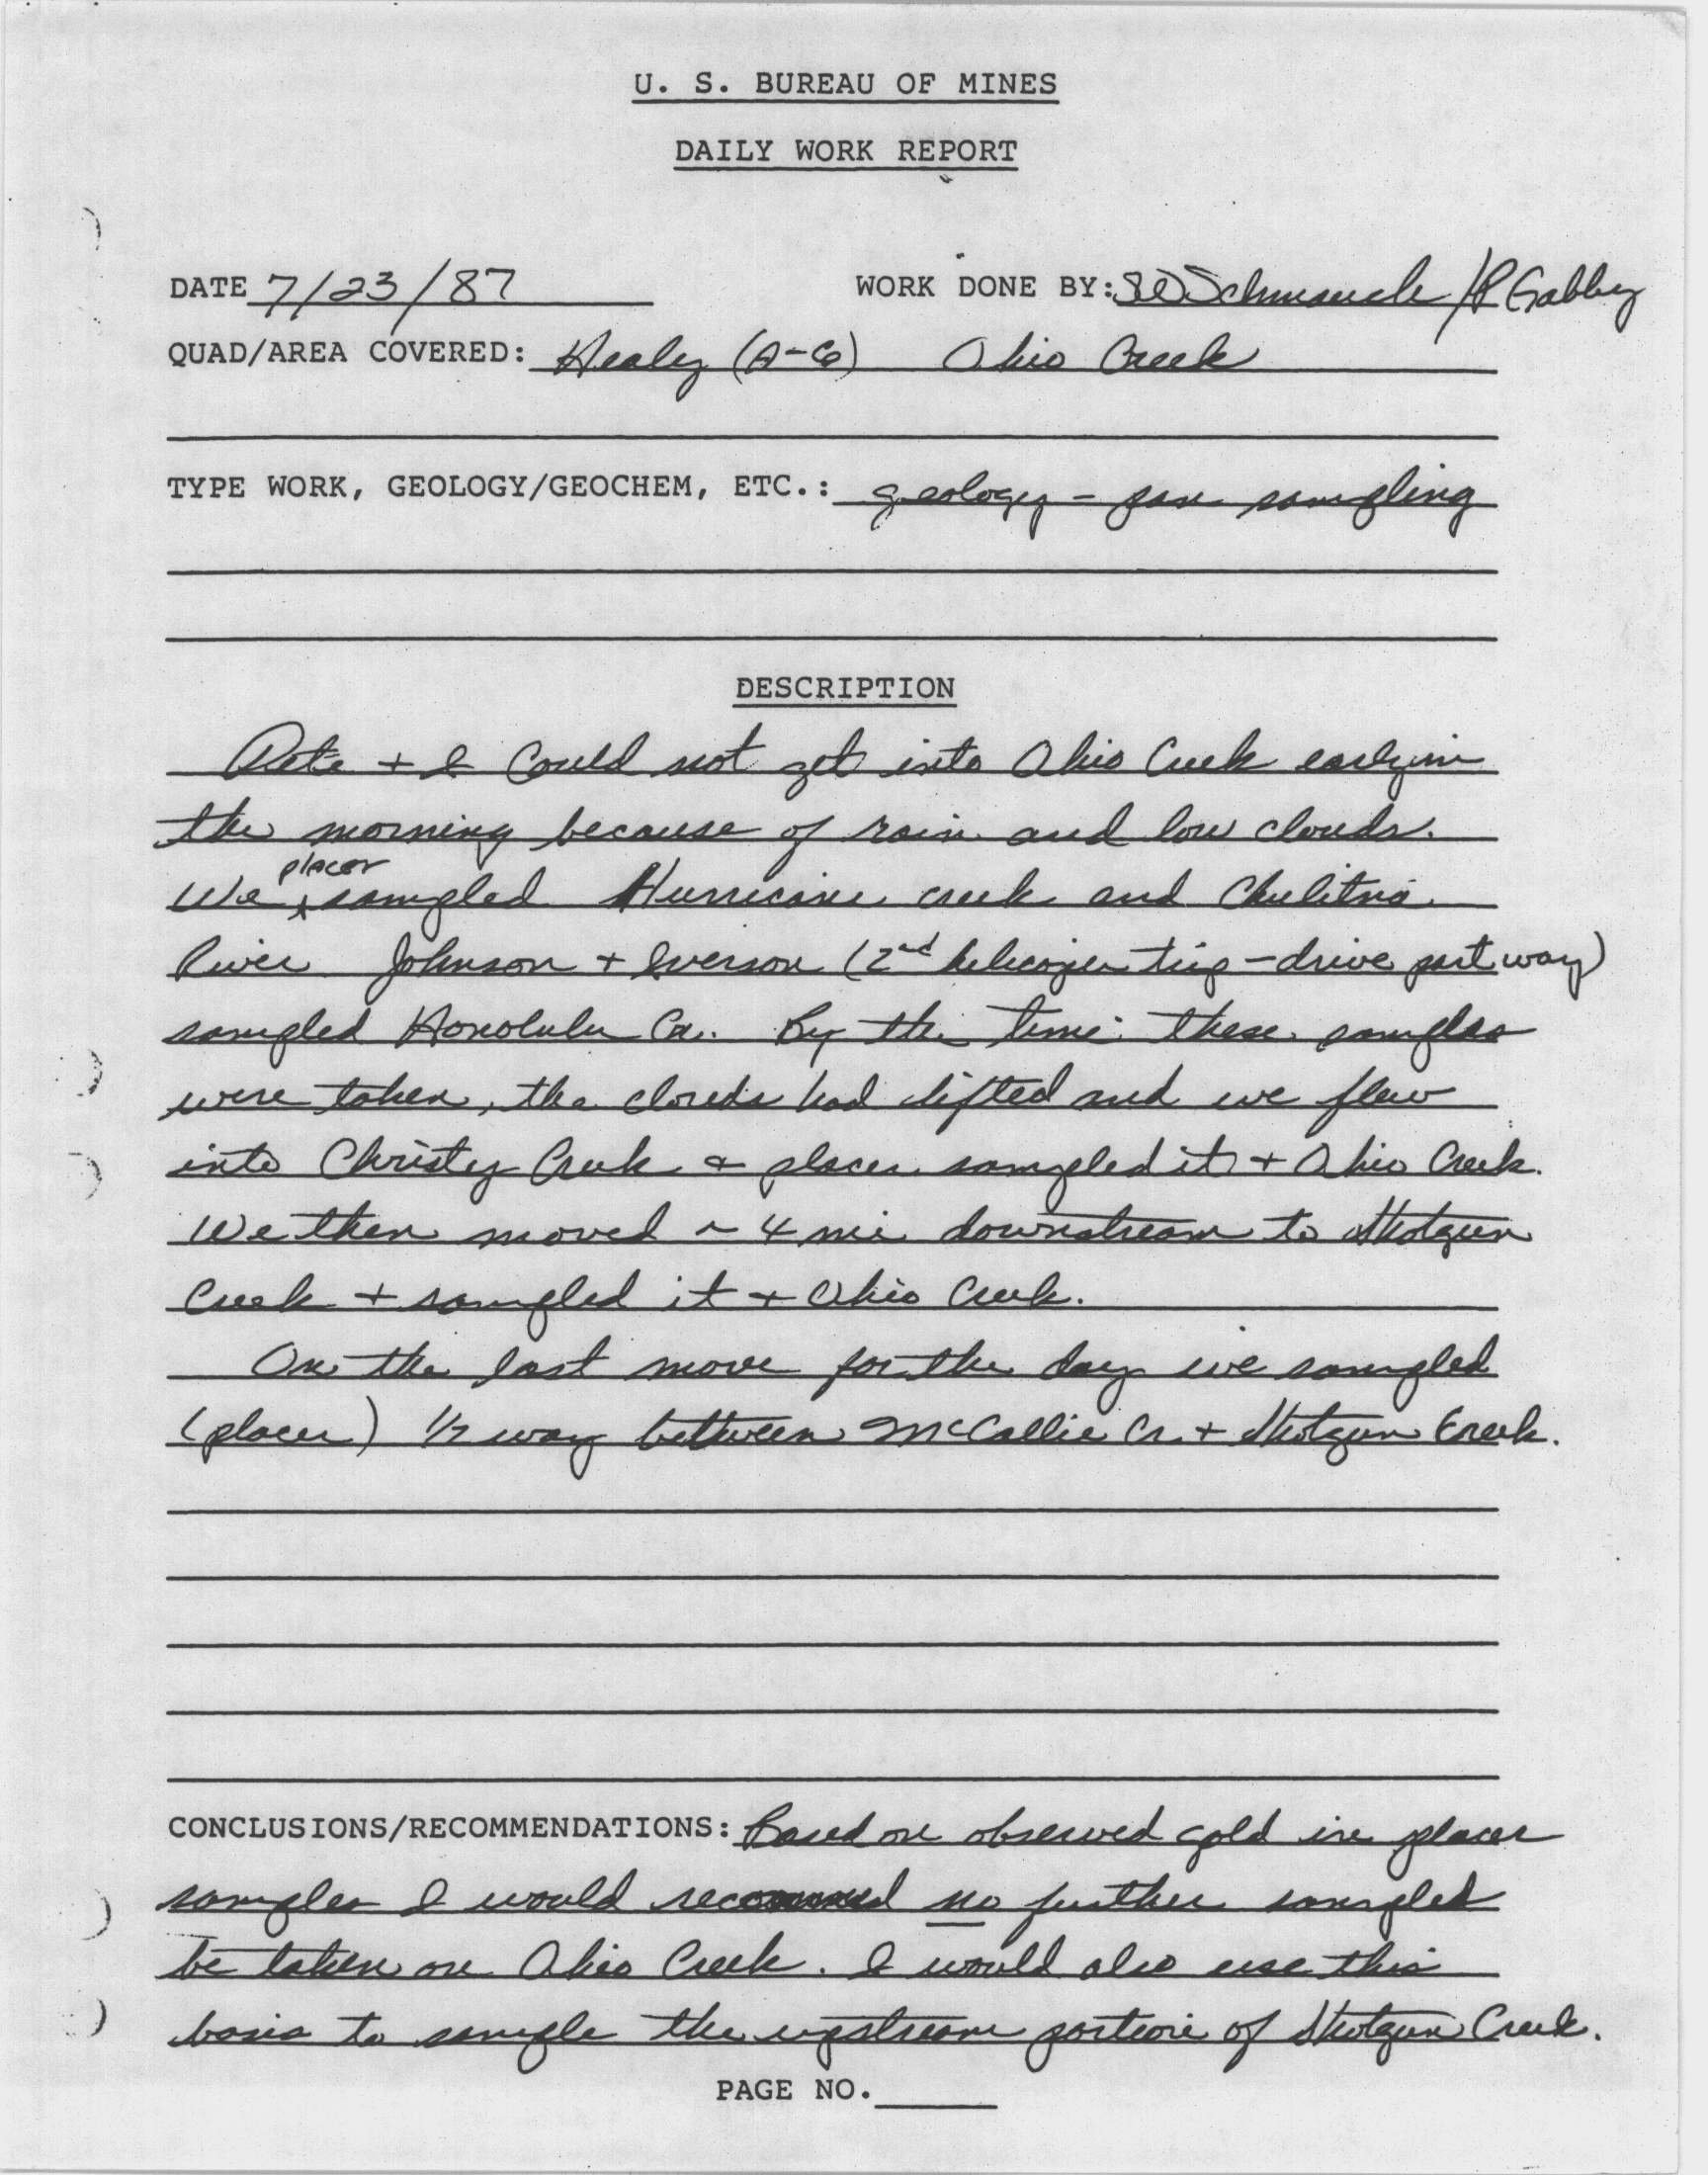 U. S. BUREAU OF MINES
DAILY WORK REPORT
DATE 7/23/87 WORK DONE BY: SWSchmauch /P Gabby
QUAD/AREA COVERED: Healy (A-6) Ohio Creek
TYPE WORK, GEOLOGY/GEOCHEM, ETC.: geology - pan sampling
DESCRIPTION
Pete + I could not get into Ohio Creek early in
the morning because of rain and low clouds.
We placer sampled Hurricane creek and Chulitna
River Johnson + Iverson (2nd helicopter trip - drive part way)
sampled Honolulu Cr. By the time these samples
were taken, the clouds had lifted and we flew
into Christy Creek & placer sampled it + Ohio Creek.
We then moved ~ 4 mi downstream to Shotgun
Creek + sampled it + Ohio Creek.
On the last move for the day we sampled
(placer) 1/2 way between McCallie Cr. + Shotgun Creek.
CONCLUSIONS/RECOMMENDATIONS: Based on observed gold in placer
samples I would recommend no further samples
be taken on Ohio Creek. I would also use this
basis to sample the upstream portion of Shotgun Creek.
PAGE NO.